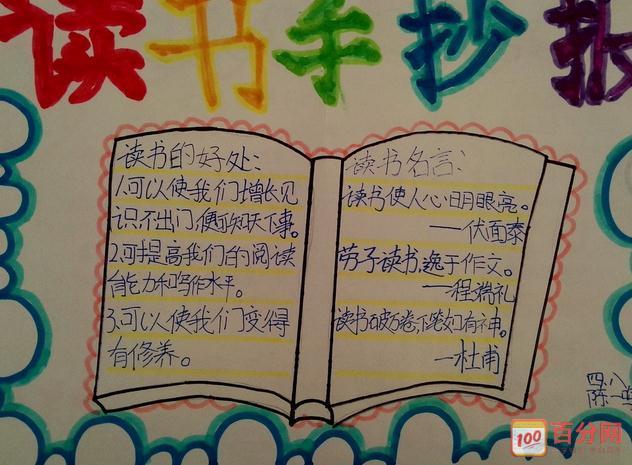 读书手抄报
读书的好处:
1.可以使我们增长见
识,不出门,便可知天下事。
2.可提高我们的阅读
能力和写作水平。
3.可以使我们变得
有修养。
读书名言:
读书使人心明眼亮。
——伏面泰
劳于读书,逸于作文。
——程端礼
读书破万卷,下笔如有神。
—杜甫
四八
陈一
百分网
100